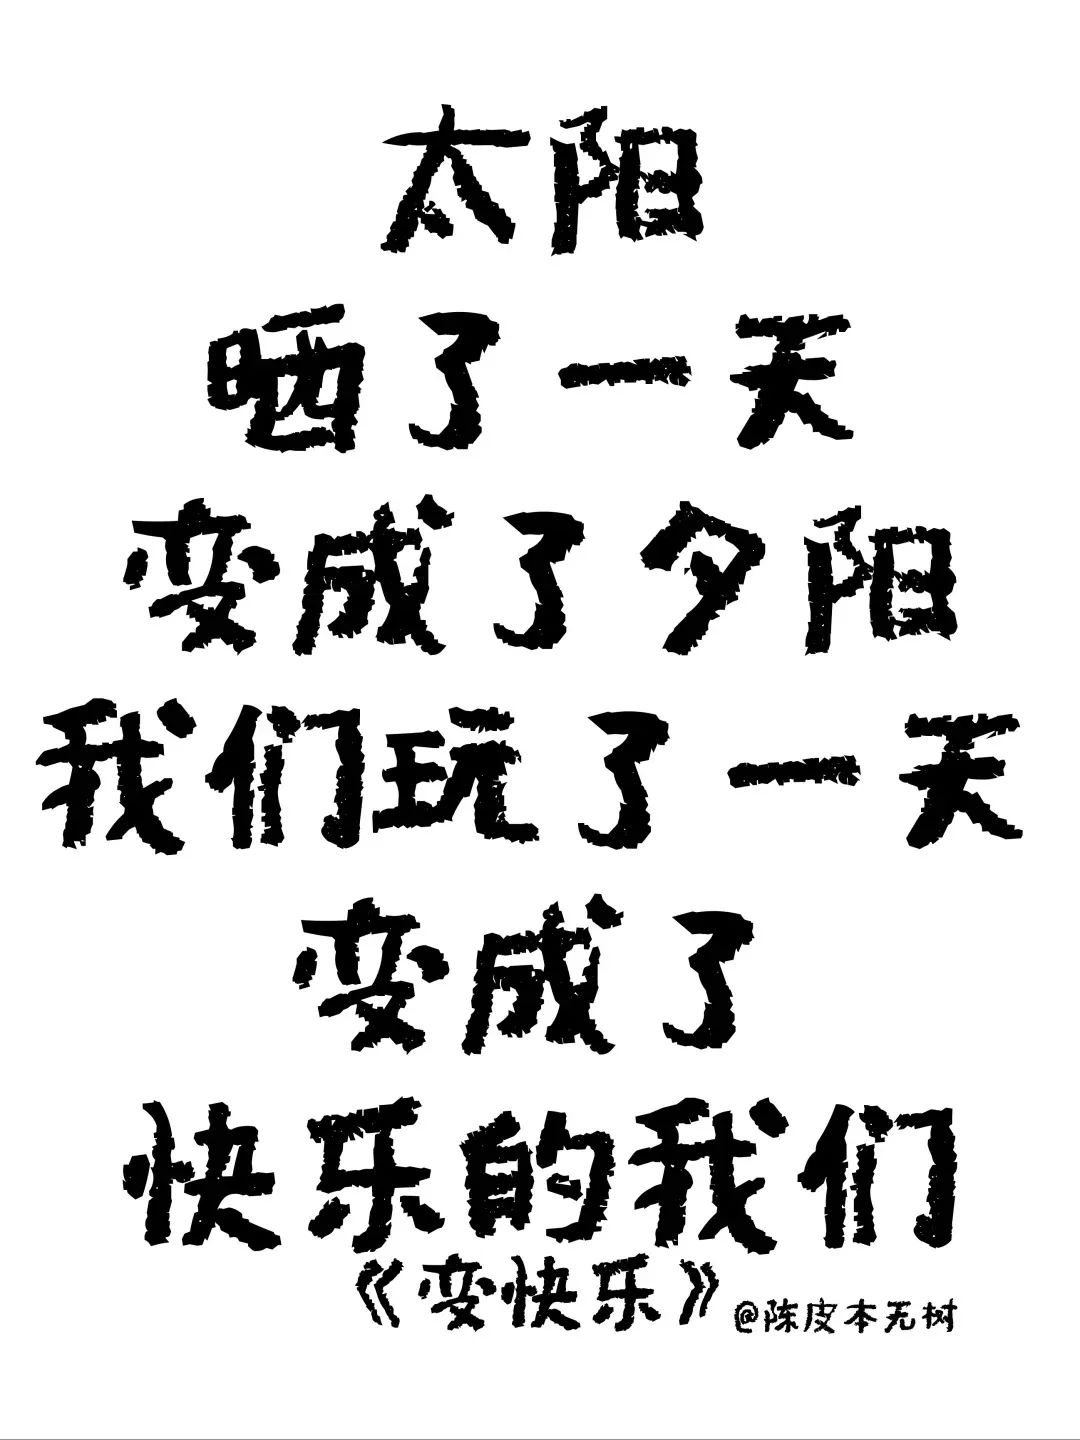 太阳
晒了一天
变成了夕阳
我们玩了一天
变成了
快乐的我们
《变快乐》
@陈皮本无树